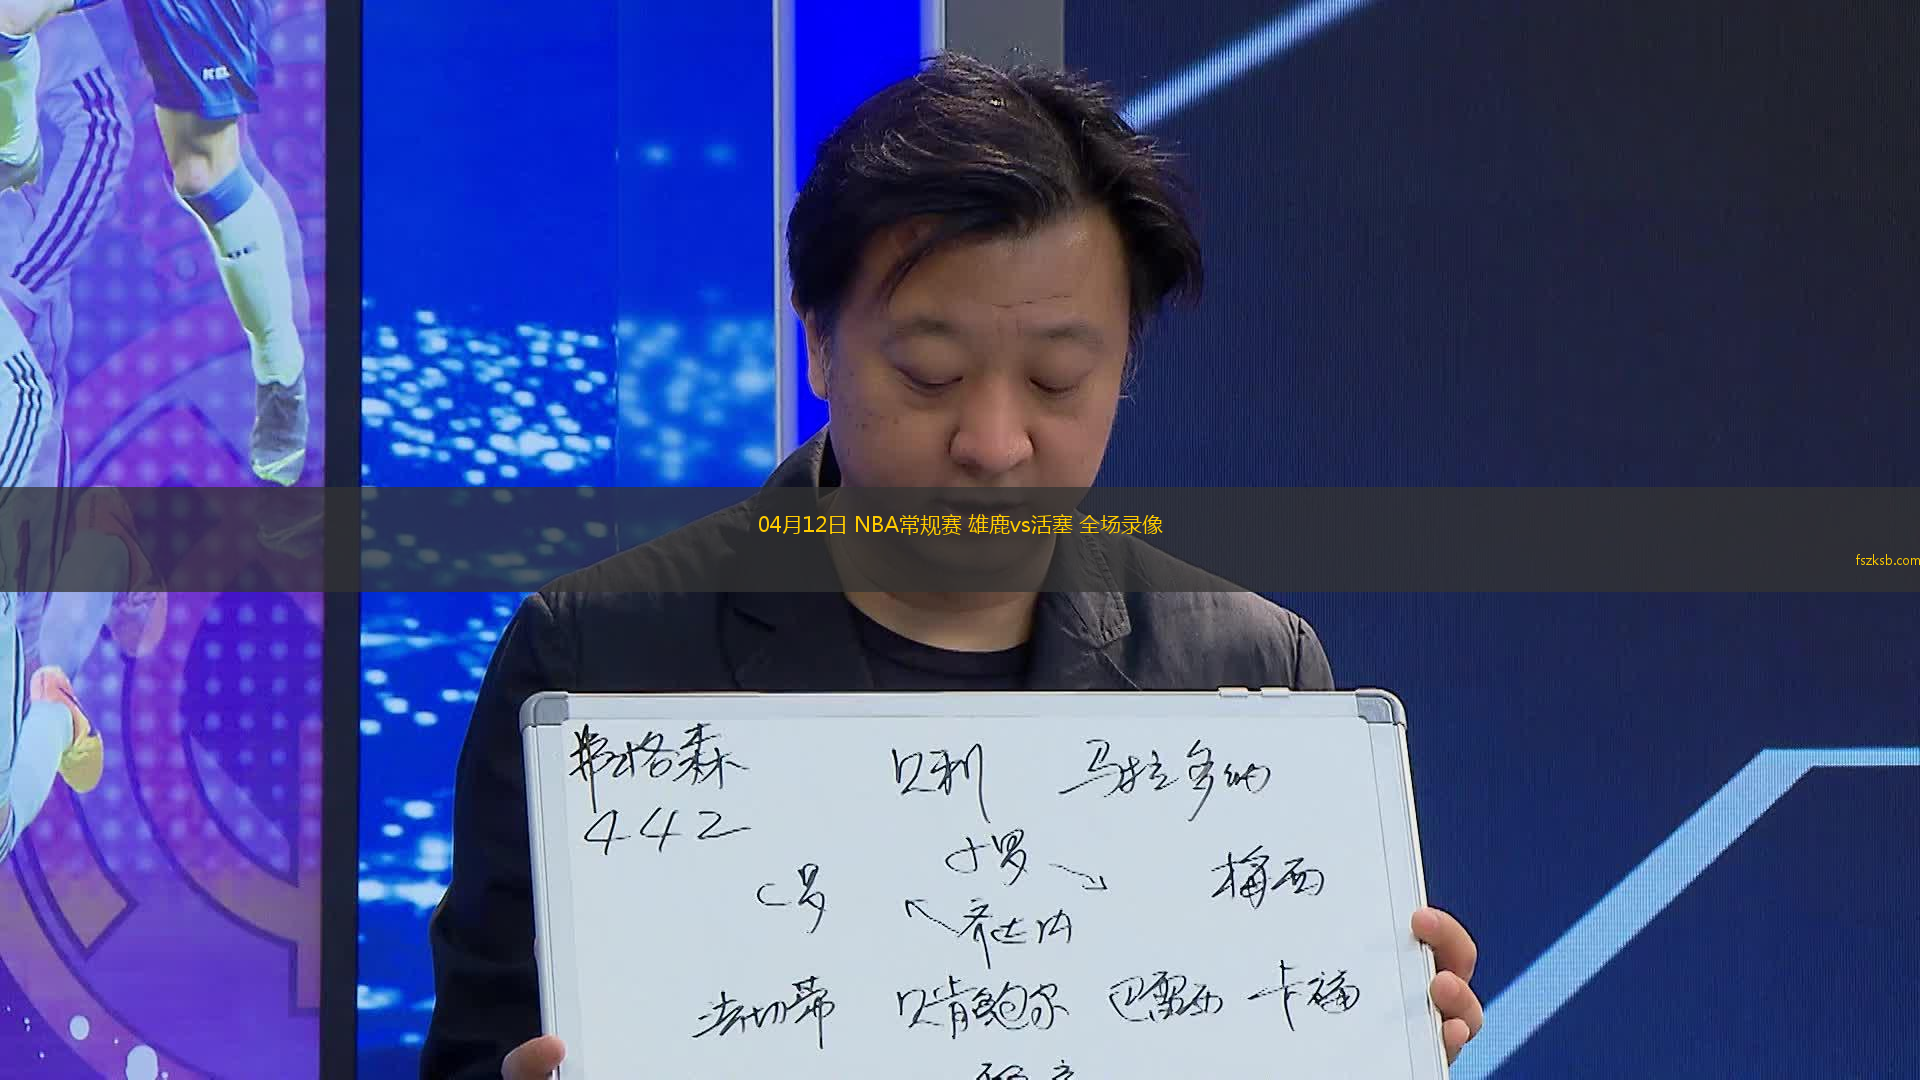 04月12日 NBA常规赛 雄鹿vs活塞 全场录像
fszksb.com
弗格森 贝利 马拉多纳
442
小罗
C罗 梅西
齐达内
法切蒂 贝肯鲍尔 巴雷西 卡福